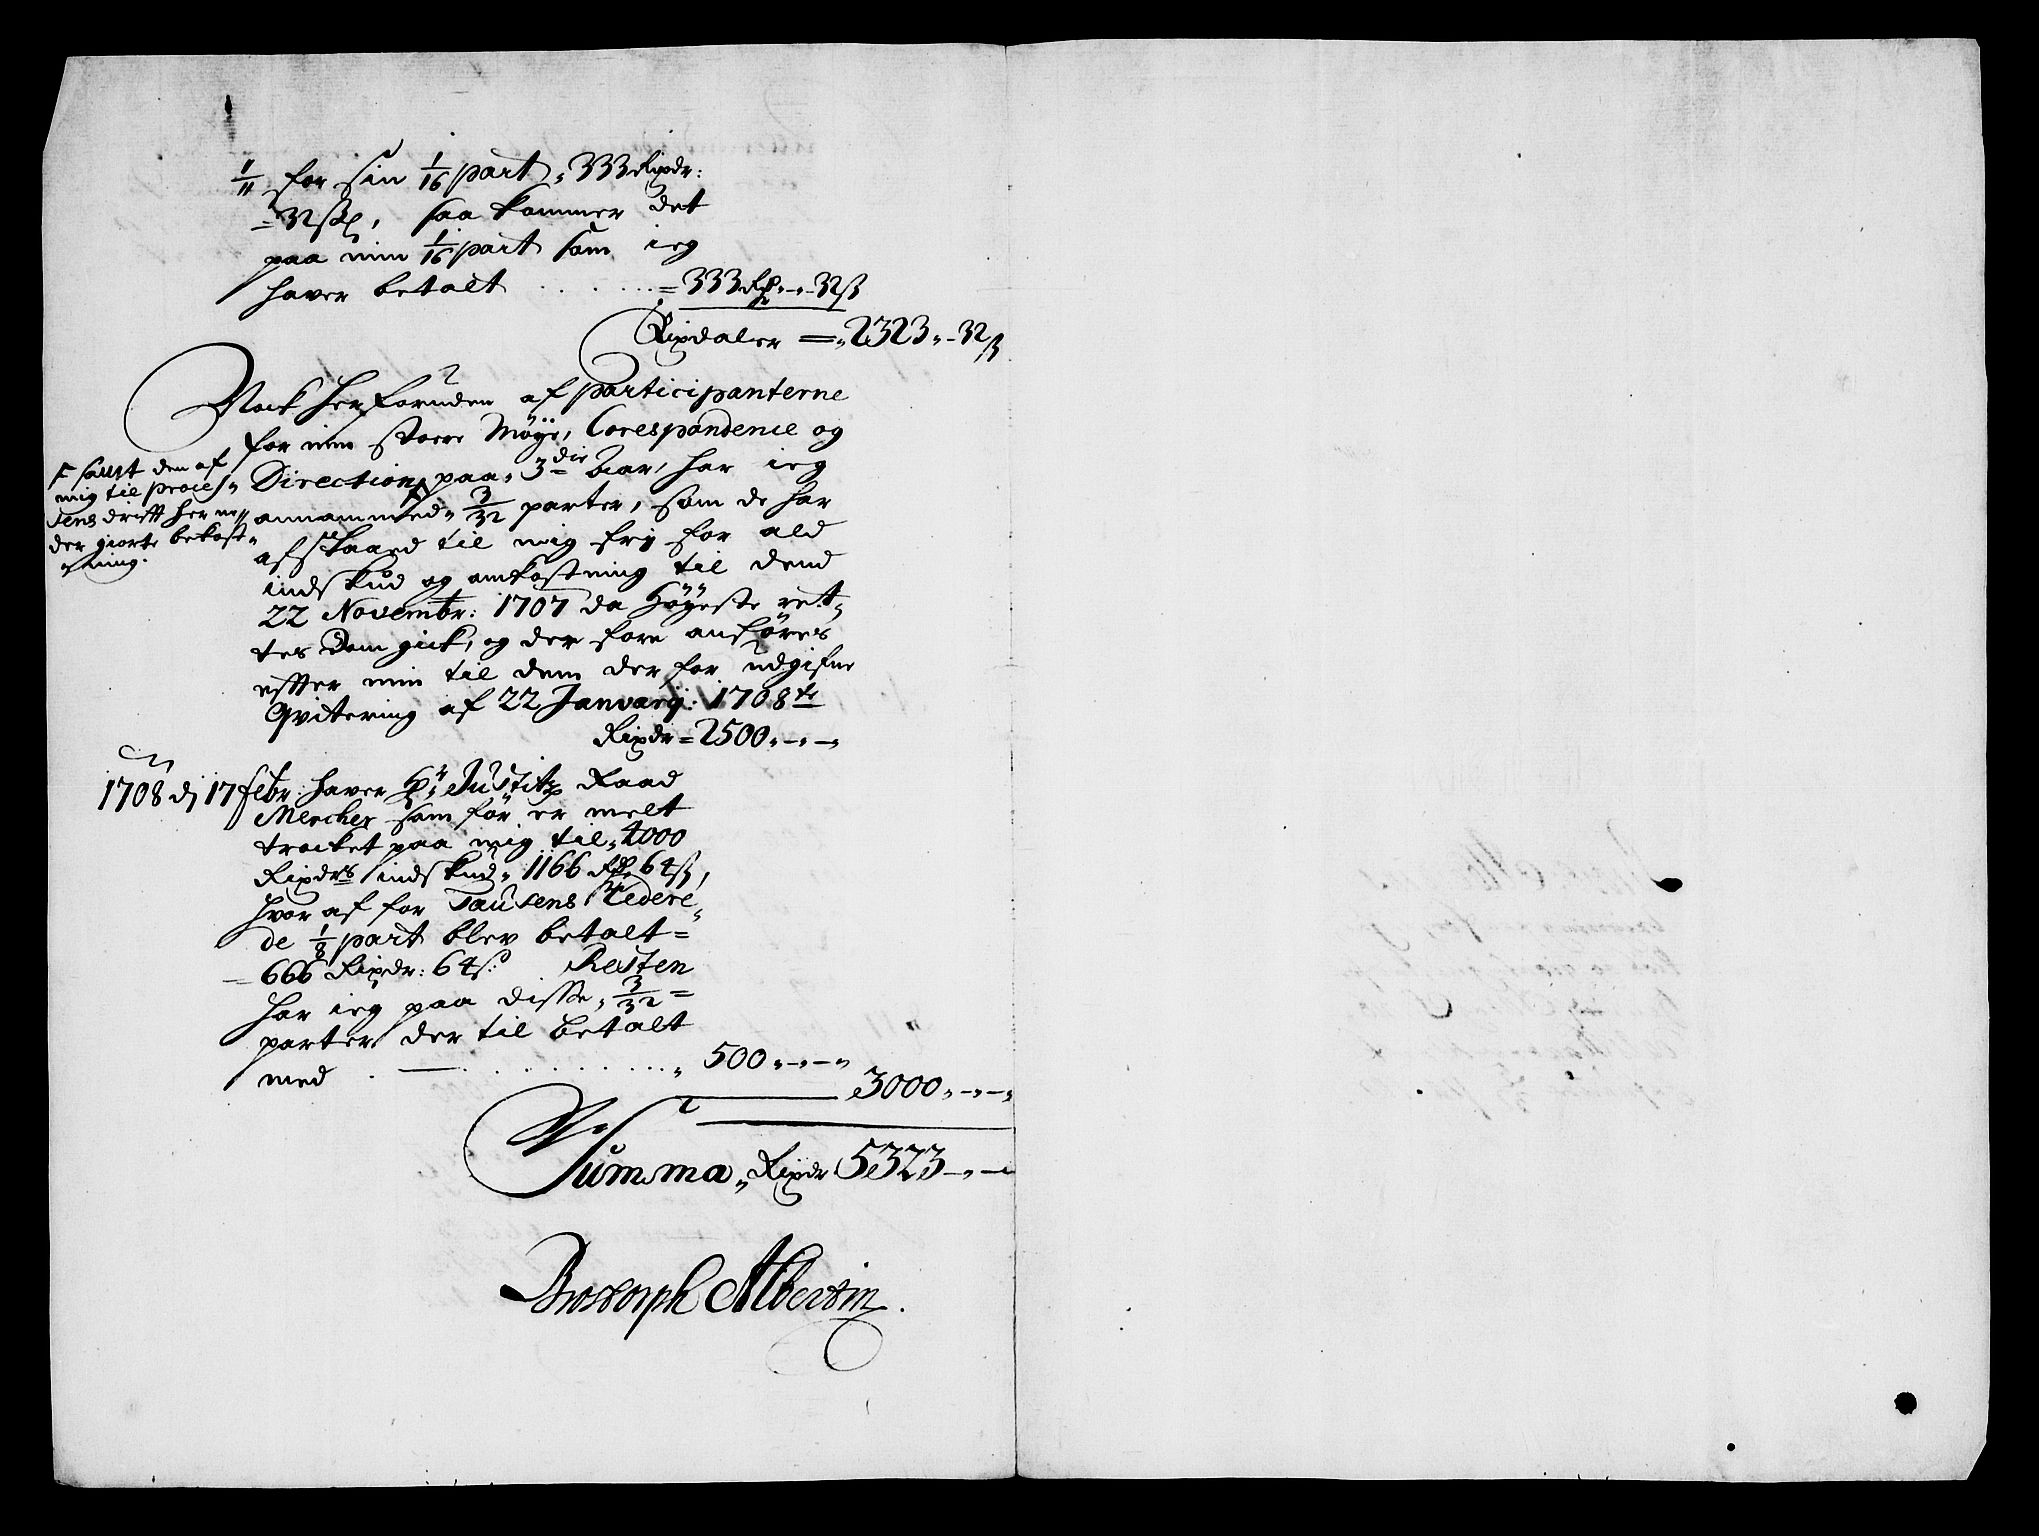 1/11 for sin 1/16 part, 333 Rixdr:
32 sk, saa kommer det
paa min 1/16 part som ieg
haver betalt . . . . . . = 333 Rdr - 32 ß
Rixdaler = 2323 - 32 ß
Nock herforuden af participanterne
for min stoere Møye, Corespondence og
Direction paa 3die Aar, har ieg
annammed 3/32 parter, som de har
afstaaed til mig frij for ald
indskud og omkostning til dend
22 Novembr: 1707 da Høyeste ret-
tes Dom gick, og der fore anføres
effter min til dem der for udgifne
Qvitering af 22 Januarij: 1708te
Rixdr = 2500 - -
F samt den af
mig til proces-
sens drifft her un-
der giorte bekost-
ning.
1708 dj 17 febr: haver Hr Justitz Raad
Mercker som før er melt
trocket paa mig til 4000
Rixdrs indskud 1166 Rdr 64 ß,
hvor af for Tausens Rederi-
de 1/8 part blev betalt =
= 666 Rixdr: 64 s: Resten
har ieg paa disse 3/32 =
parter der til betalt
med . . . . . . . . . 500 - -
3000 - -
Summa Rixdr 5323 - -
Albertin.